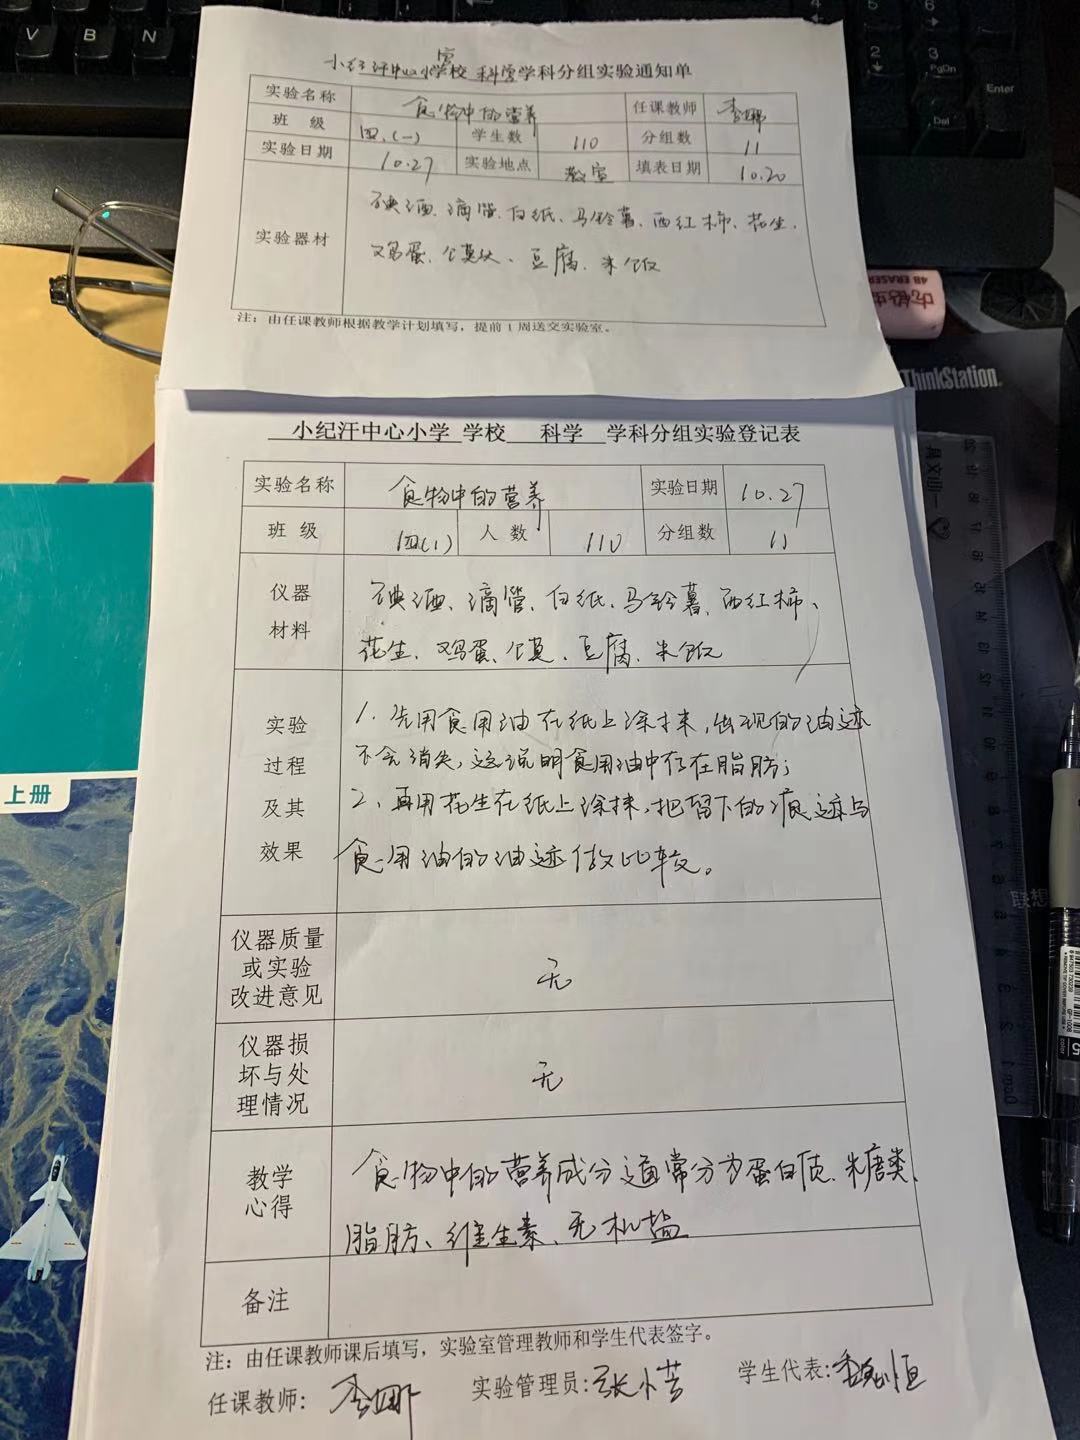 V B N
5
6
2
3
PgDn
Enter
Del
小纪汗中心小学校 科学学科分组实验通知单
实验名称 食物中的营养 任课教师 李娜
班 级 四.(一) 学生数 110 分组数 11
实验日期 10.27 实验地点 教室 填表日期 10.20
实验器材
碘酒、滴管、白纸、马铃薯、西红柿、花生、
鸡蛋、馍、豆腐、米饭
注：由任课教师根据教学计划填写，提前1周送交实验室。
4B ERASER
ThinkStation
小纪汗中心小学 学校 科学 学科分组实验登记表
实验名称 食物中的营养 实验日期 10.27
班 级 四(1) 人 数 110 分组数 11
仪器
材料
碘酒、滴管、白纸、马铃薯、西红柿、
花生、鸡蛋、馍、豆腐、米饭
实验
过程
及其
效果
1.先用食用油在纸上涂抹，出现的油迹
不会消失，这说明食用油中存在脂肪；
2、再用花生在纸上涂抹，把留下的痕迹与
食用油的油迹做比较。
仪器质量
或实验
改进意见
无
仪器损
坏与处
理情况
无
教学
心得
食物中的营养成分通常分为蛋白质、糖类、
脂肪、维生素、无机盐
备注
注：由任课教师课后填写，实验室管理教师和学生代表签字。
任课教师：李娜 实验管理员:张小芸 学生代表:
上册
联想